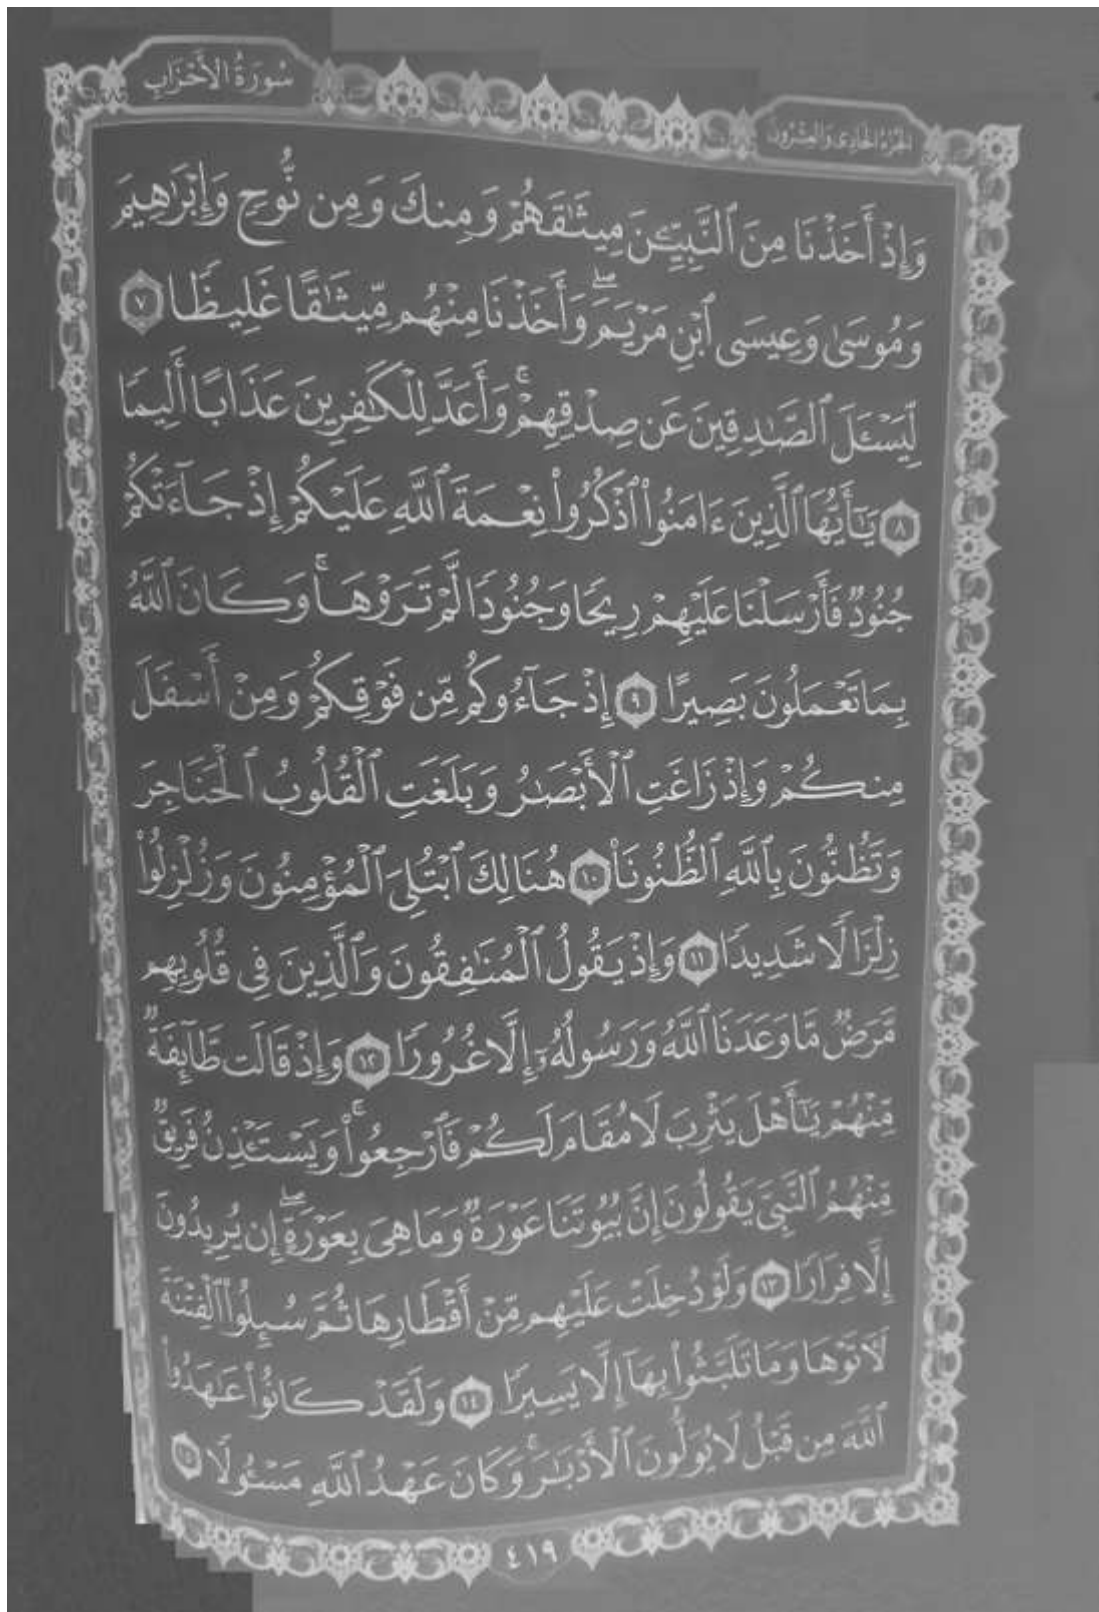 سُورَةُ الأَحْزَابِ
الجُزْءُ الحَادِى وَالعِشْرُونَ
وَإِذْ أَخَذْنَا مِنَ ٱلنَّبِيِّـۧنَ مِيثَـٰقَهُمْ وَمِنكَ وَمِن نُّوحٍ وَإِبْرَٰهِيمَ
وَمُوسَىٰ وَعِيسَى ٱبْنِ مَرْيَمَ ۖ وَأَخَذْنَا مِنْهُم مِّيثَـٰقًا غَلِيظًا ٧
لِّيَسْـَٔلَ ٱلصَّـٰدِقِينَ عَن صِدْقِهِمْ ۚ وَأَعَدَّ لِلْكَـٰفِرِينَ عَذَابًا أَلِيمًا
٨ يَـٰٓأَيُّهَا ٱلَّذِينَ ءَامَنُوا۟ ٱذْكُرُوا۟ نِعْمَةَ ٱللَّهِ عَلَيْكُمْ إِذْ جَآءَتْكُمْ
جُنُودٌ فَأَرْسَلْنَا عَلَيْهِمْ رِيحًا وَجُنُودًا لَّمْ تَرَوْهَا ۚ وَكَانَ ٱللَّهُ
بِمَا تَعْمَلُونَ بَصِيرًا ٩ إِذْ جَآءُوكُم مِّن فَوْقِكُمْ وَمِنْ أَسْفَلَ
مِنكُمْ وَإِذْ زَاغَتِ ٱلْأَبْصَـٰرُ وَبَلَغَتِ ٱلْقُلُوبُ ٱلْحَنَاجِرَ
وَتَظُنُّونَ بِٱللَّهِ ٱلظُّنُونَا۠ ١٠ هُنَالِكَ ٱبْتُلِىَ ٱلْمُؤْمِنُونَ وَزُلْزِلُوا۟
زِلْزَالًا شَدِيدًا ١١ وَإِذْ يَقُولُ ٱلْمُنَـٰفِقُونَ وَٱلَّذِينَ فِى قُلُوبِهِم
مَّرَضٌ مَّا وَعَدَنَا ٱللَّهُ وَرَسُولُهُۥٓ إِلَّا غُرُورًا ١٢ وَإِذْ قَالَت طَّآئِفَةٌ
مِّنْهُمْ يَـٰٓأَهْلَ يَثْرِبَ لَا مُقَامَ لَكُمْ فَٱرْجِعُوا۟ ۚ وَيَسْتَـْٔذِنُ فَرِيقٌ
مِّنْهُمُ ٱلنَّبِىَّ يَقُولُونَ إِنَّ بُيُوتَنَا عَوْرَةٌ وَمَا هِىَ بِعَوْرَةٍ ۖ إِن يُرِيدُونَ
إِلَّا فِرَارًا ١٣ وَلَوْ دُخِلَتْ عَلَيْهِم مِّنْ أَقْطَارِهَا ثُمَّ سُئِلُوا۟ ٱلْفِتْنَةَ
لَـَٔاتَوْهَا وَمَا تَلَبَّثُوا۟ بِهَآ إِلَّا يَسِيرًا ١٤ وَلَقَدْ كَانُوا۟ عَـٰهَدُوا۟
ٱللَّهَ مِن قَبْلُ لَا يُوَلُّونَ ٱلْأَدْبَـٰرَ ۚ وَكَانَ عَهْدُ ٱللَّهِ مَسْـُٔولًا ١٥
٤١٩